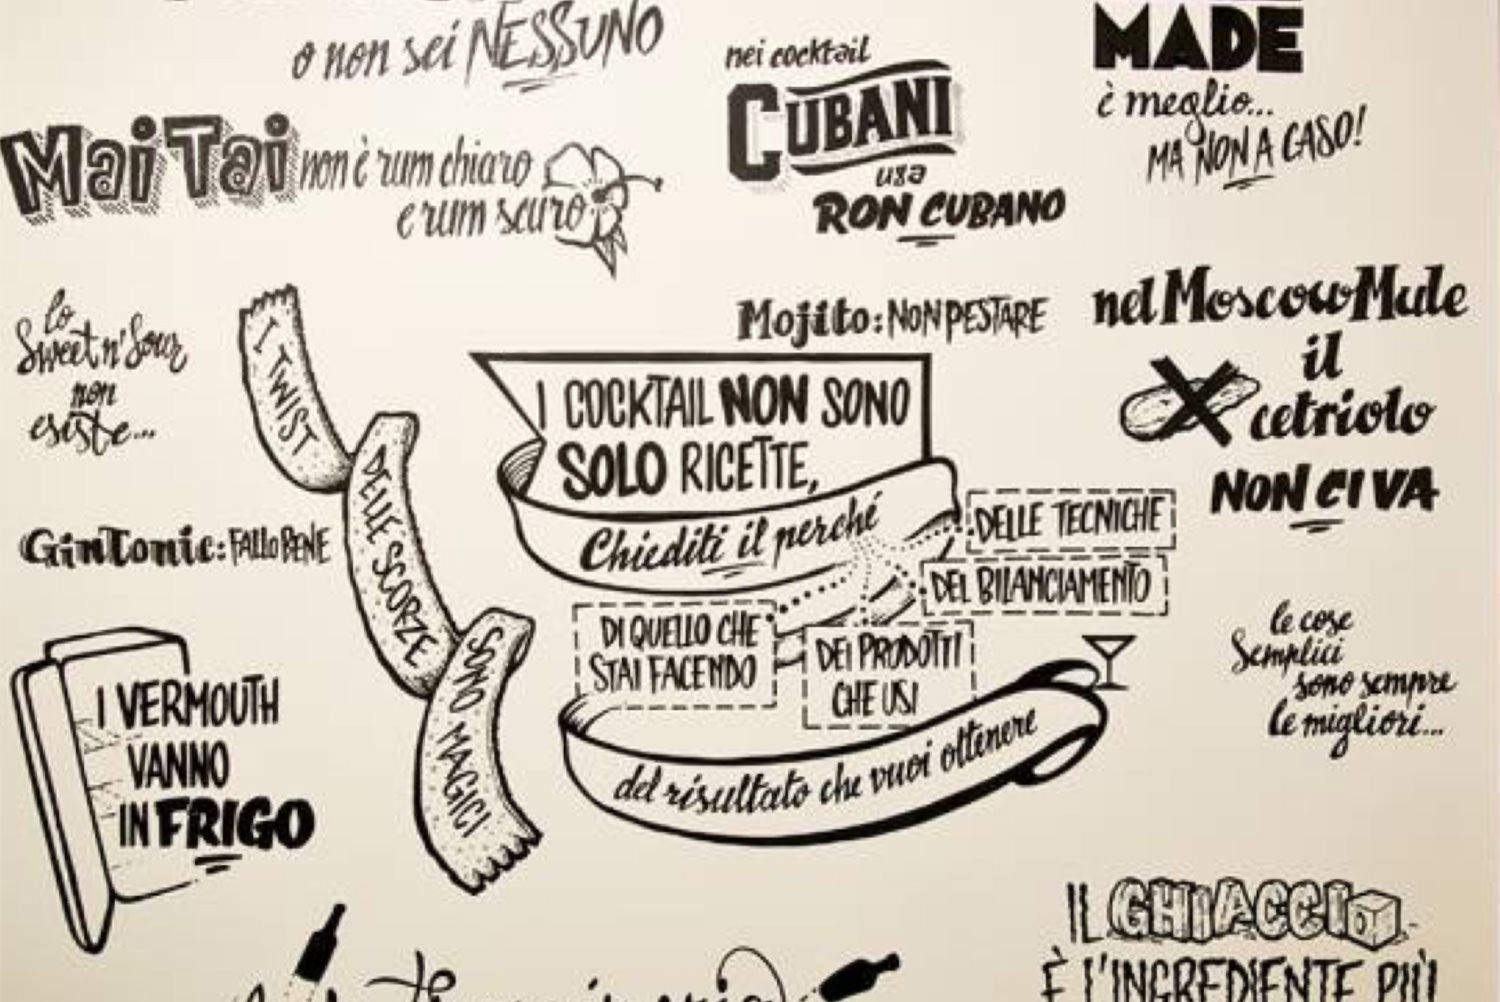 o non sei NESSUNO
nei cocktail
CUBANI
usa
RON CUBANO
MADE
è meglio...
MA NON A CASO!
Mai Tai non è rum chiaro
e rum scuro
lo
Sweet n' Sour
non
esiste...
I TWIST
DELLE SCORZE
SONO MAGICI
Mojito: NON PESTARE
nel Moscow Mule
il
cetriolo
NON CI VA
I COCKTAIL NON SONO
SOLO RICETTE,
Chiediti il perché
DELLE TECNICHE
DEL BILANCIAMENTO
DI QUELLO CHE
STAI FACENDO
DEI PRODOTTI
CHE USI
del risultato che vuoi ottenere
Gin Tonic: FALLO BENE
I VERMOUTH
VANNO
IN FRIGO
le cose
Semplici
sono sempre
le migliori...
IL GHIACCIO
È L'INGREDIENTE PIÙ